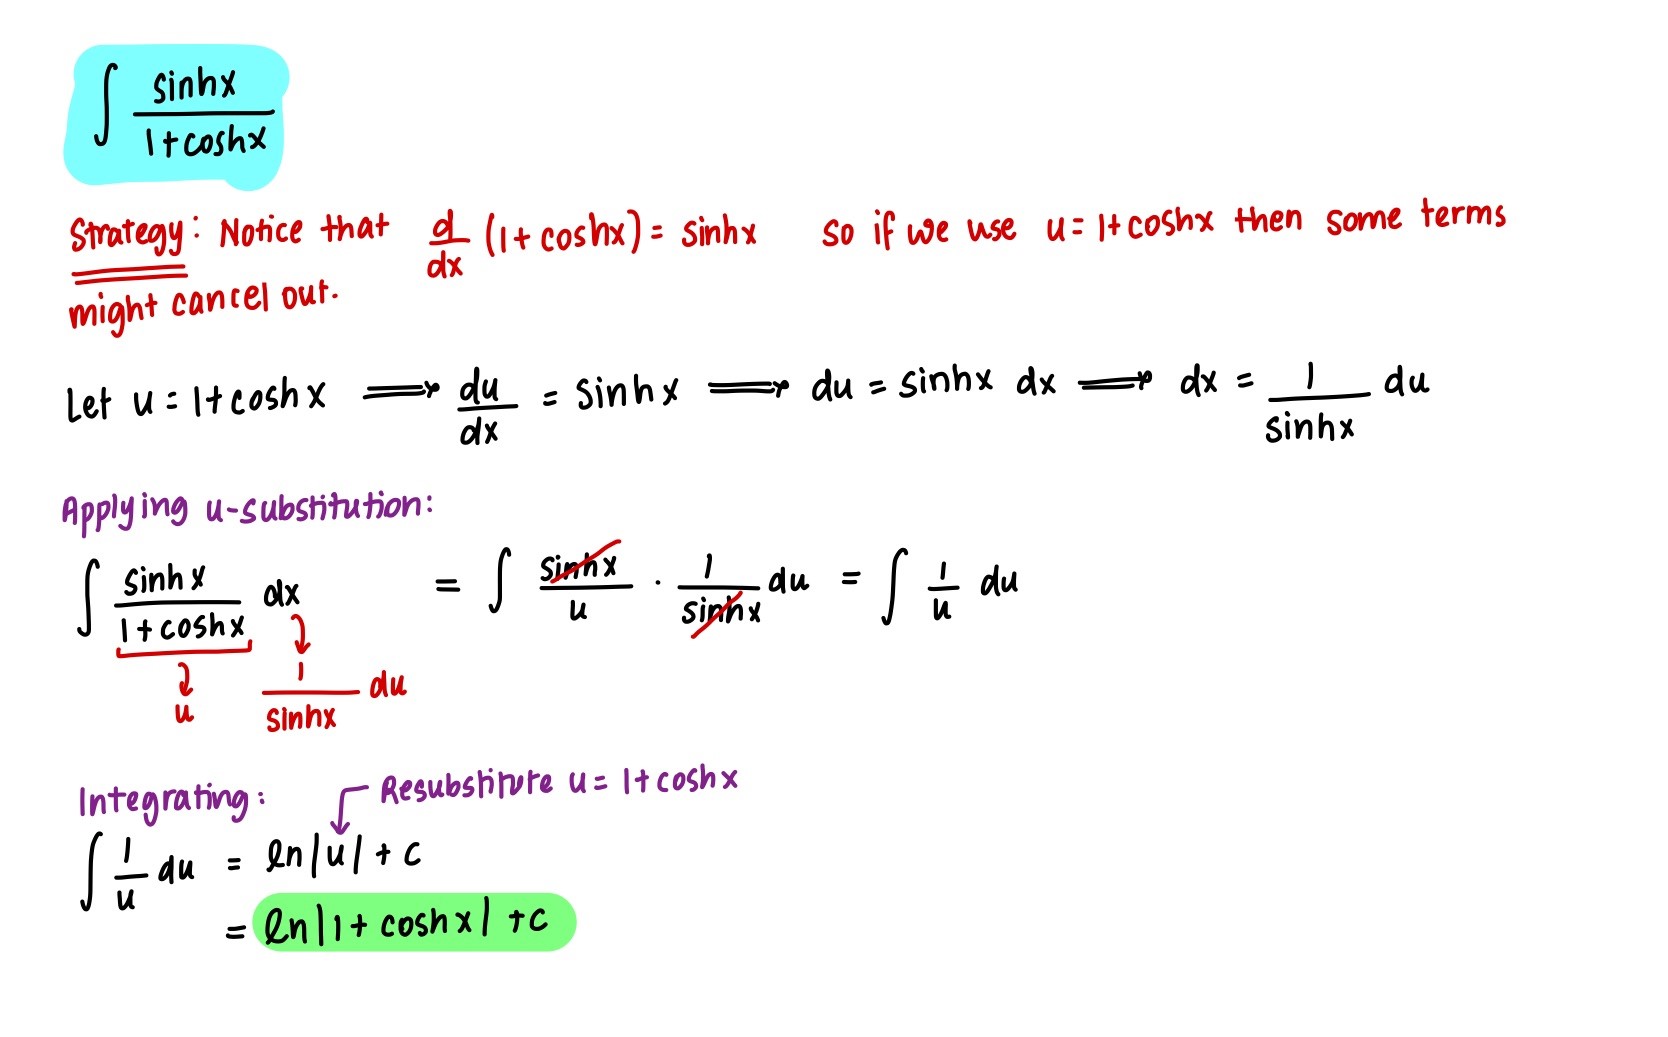 ∫ sinhx / 1+coshx
Strategy: Notice that d/dx (1+coshx) = sinhx so if we use u=1+coshx then some terms
might cancel out.
Let u=1+coshx ⟹ du/dx = sinhx ⟹ du = sinhx dx ⟹ dx = 1/sinhx du
Applying u-substitution:
∫ sinhx / 1+coshx dx = ∫ sinhx/u · 1/sinhx du = ∫ 1/u du
u 1/sinhx du
Integrating: Resubstitute u=1+coshx
∫ 1/u du = ln|u| + c
= ln|1+coshx| +c